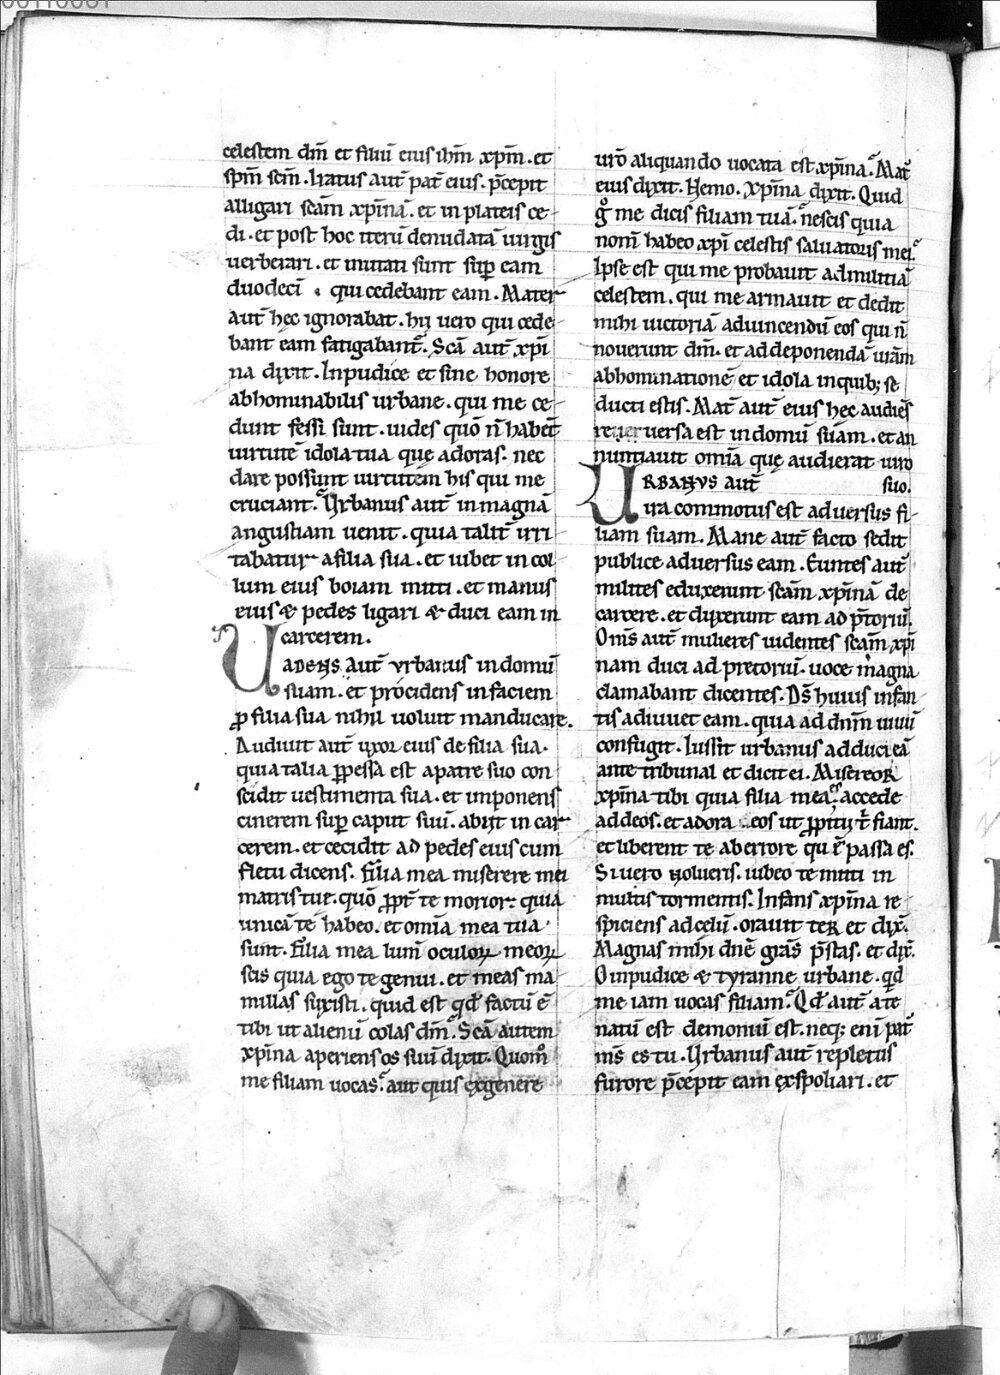 celestem dm̄ et filiū eius ihm̄ xp̄m. et
sp̄m scm̄. Iratus aut̄ pat̄ eius. p̄cepit
alligari scām xp̄inā. et in plateis ce-
di. et post hoc iterū denudatā uirgis
uerberari. et mutati sunt sup̄ eam
duodeci ̄. qui cedebant eam. Mater
aut̄ hec ignorabat. hij uero qui cede-
bant eam fatigabant̄. Scā aut̄ xp̄i
na dixit. Inpudice et sine honore
abhominabilis urbane. qui me ce-
dunt fessi sunt. uides quō n̄ habēt
uirtutē idola tua quę adoras. nec
dare possunt uirtutem his qui me
cruciant. Urbanus aut̄ in magnā
angustiam uenit. quia talit̄ irri
tabatur a filia sua. et iubet in col
lum eius boiam mitti. et manus
eius & pedes ligari & duci eam in
carcerem.
UADENS. Aut̄ vrbanus in domū
suam. et procidens in faciem
ꝓ filia sua nihil uoluit manducare.
Audiuit aut̄ uxor eius de filia sua.
quia talia ꝑpessa est a patre suo con
scidit uestimenta sua. et imponens
cinerem sup̄ caput suū. abijt in car-
cerem. et cecidit ad pedes eius cum
fletu dicens. Filia mea miserere mei
matris tuę. quō ꝓpt̄ te morior. quia
unicā te habeo. et omīa mea tua
sunt. Filia mea lum̄ oculoꝝ meoꝝ
scis quia ego te genui. et meas ma
millas suxisti. quid est qd̄ factū ē
tibi ut alienū colas dm̄. Scā autem
xp̄ina aperiens os suū dixit. Quom̊
me filiam uocas. aut quis ex genere
urō aliquando uocata est xp̄ina. Mat̄
eius dixit. Nemo. xp̄ina dixit. Quid
g̊ me dicis filiam tuā. nescis quia
nom̄ habeo xp̄i celestis saluatoris mei.
Ipse est qui me probauit ad militiā
celestem. qui me armauit et dedit
mihi uictoriā ad uincendū eos qui n̄
nouerunt dm̄. et ad deponendā urām
abhominationē et idola in quib; se
ducti estis. Mat̄ aut̄ eius hec audiēs
reuersa est in domū suam. et an
nuntiauit omīa quę audierat uiro
suo.
URBANUS aut̄
ira commotus est aduersus fi-
liam suam. Mane aut̄ facto sedit
publice aduersus eam. Euntes aut̄
milites eduxerunt scām xp̄inā de
carcere. et duxerunt eam ad p̄toriū.
Om̄s aut̄ mulieres uidentes scām xp̄i
nam duci ad pretoriū. uoce magna
clamabant dicentes. Ds̄ huius infan-
tis adiuuet eam. quia ad dn̄m uiuū
confugit. Iussit urbanus adduci eā
ante tribunal et dicit ei. Misereor
xp̄ina tibi quia filia mea es. accede
ad deos. et adora eos ut ꝓpitij t̄ fiant.
et liberent te ab errore quē passa es.
Si uero nolueris. iubeo te mitti in
multis tormentis. Infans xp̄ina re
spiciens ad celū. orauit ter et dix̄.
Magnas mihi dnē grās p̄stas. et dix̄.
O inpudice & tyranne urbane. qd̄
me iam uocas filiam. Qd̄ aut̄ a te
natū est demoniū est. neq; eni pat̄
ms̄ es tu. Urbanus aut̄ repletus
furore p̄cepit eam exspoliari. et